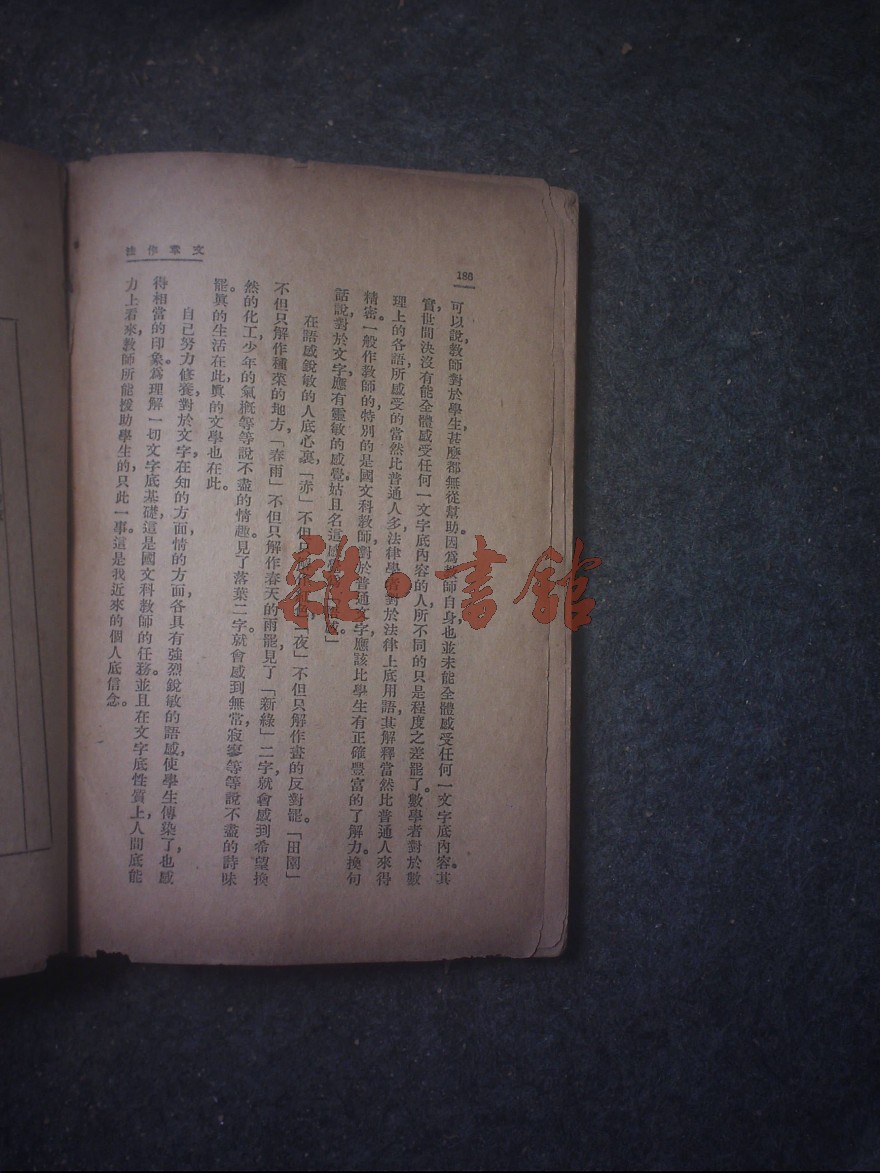 186
文章作法
可以說，教師對於學生，甚麼都無從幫助。因爲教師自身也並未能全體感受任何一文字底內容。其
實，世間決沒有能全體感受任何一文字底內容的人，所不同的只是程度之差罷了。數學者對於數
理上的各語，所感受的當然比普通人多，法律學者對於法律上底用語，其解釋當然比普通人來得
精密。一般作教師的，特別的是國文科教師，對於普通文字，應該比學生有正確豐富的了解力。換句
話說，對於文字，應有靈敏的感覺。姑且名這感覺爲「語感」。
在語感銳敏的人底心裏，「赤」不但只解作紅色，「夜」不但只解作晝的反對罷。「田園」
不但只解作種菜的地方，「春雨」不但只解作春天的雨罷。見了「新綠」二字，就會感到希望、換
然的化工、少年的氣概等等說不盡的情趣。見了落葉二字，就會感到無常、寂寥等等說不盡的詩味
罷。眞的生活在此，眞的文學也在此。
自己努力修養，對於文字，在知的方面，情的方面，各具有強烈銳敏的語感，使學生傳染了，也感
得相當的印象。爲理解一切文字底基礎，這是國文科教師的任務。並且在文字底性質上，人間底能
力上看來，教師所能援助學生的，只此一事。這是我近來的個人底信念。
雜·書館